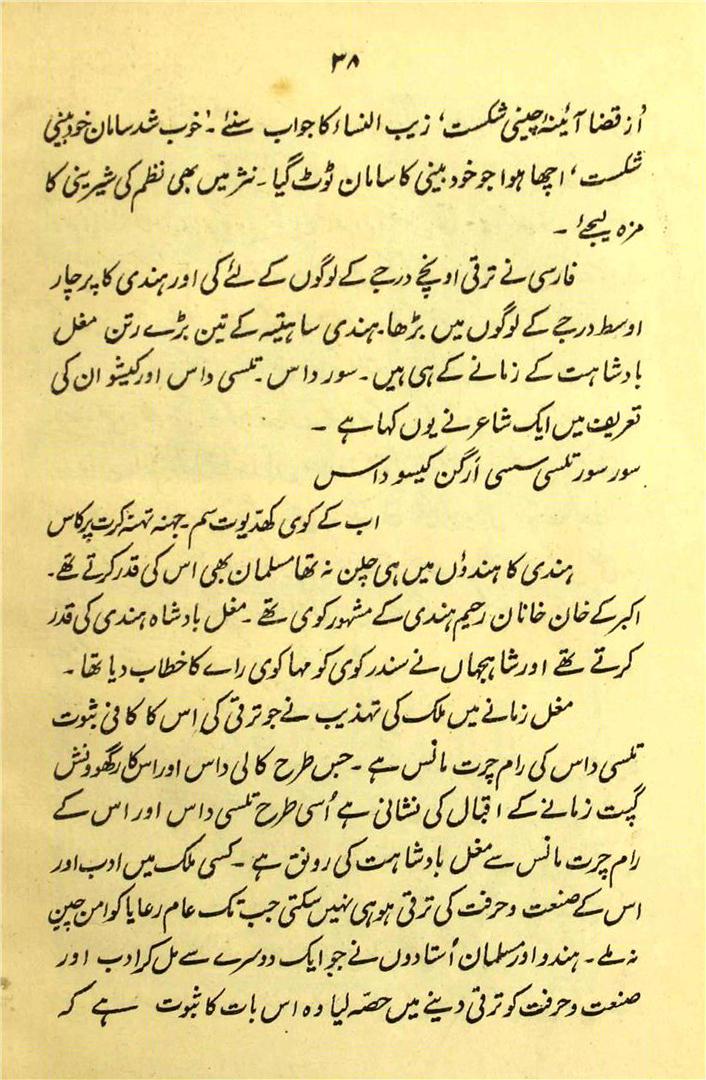 ۳۸
اُز قضا آئینۂ چینی شکست، زیب النساء کا جواب سنئے۔ ’خوب شد سامان خود بینی
شکست، اچھا ہوا جو خود بینی کا سامان ٹوٹ گیا۔ نثر میں بھی نظم کی شیرینی کا
مزہ لیجے‘ ۔
فارسی نے ترقی اونچے درجے کے لوگوں کے لئے کی اور ہندی کا پرچار
اوسط درجے کے لوگوں میں بڑھا۔ ہندی ساہتیہ کے تین بڑے رتن مغل
بادشاہت کے زمانے کے ہی ہیں۔ سور داس۔ تلسی داس اور کیشو ان کی
تعریف میں ایک شاعر نے یوں کہا ہے ۔
سور سور تلسی سسی اُرگن کیسو داس
اب کے کوی کھدیوت سم۔ جہنہ تہنہ کرت پرکاس
ہندی کا ہندوؤں میں ہی چلن نہ تھا مسلمان بھی اس کی قدر کرتے تھے۔
اکبر کے خان خانان رحیم ہندی کے مشہور کوی تھے ۔ مغل بادشاہ ہندی کی قدر
کرتے تھے اور شاہجہاں نے سندر کوی کو مہا کوی راے کا خطاب دیا تھا ۔
مغل زمانے میں ملک کی تہذیب نے جو ترقی کی اِس کا کافی ثبوت
تلسی داس کی رام چرت مانس ہے ۔ جس طرح کالی داس اور اس کا رگھوونش
گپت زمانے کے اقبال کی نشانی ہے اُسی طرح تلسی داس اور اس کے
رام چرت مانس سے مغل بادشاہت کی رونق ہے ۔ کسی ملک میں ادب اور
اس کے صنعت و حرفت کی ترقی ہو ہی نہیں سکتی جب تک عام رعایا کو امن چین
نہ ملے۔ ہندو اور مسلمان اُستادوں نے جو ایک دوسرے سے مل کر ادب اور
صنعت و حرفت کو ترقی دینے میں حصّہ لیا وہ اس بات کا ثبوت ہے کہ